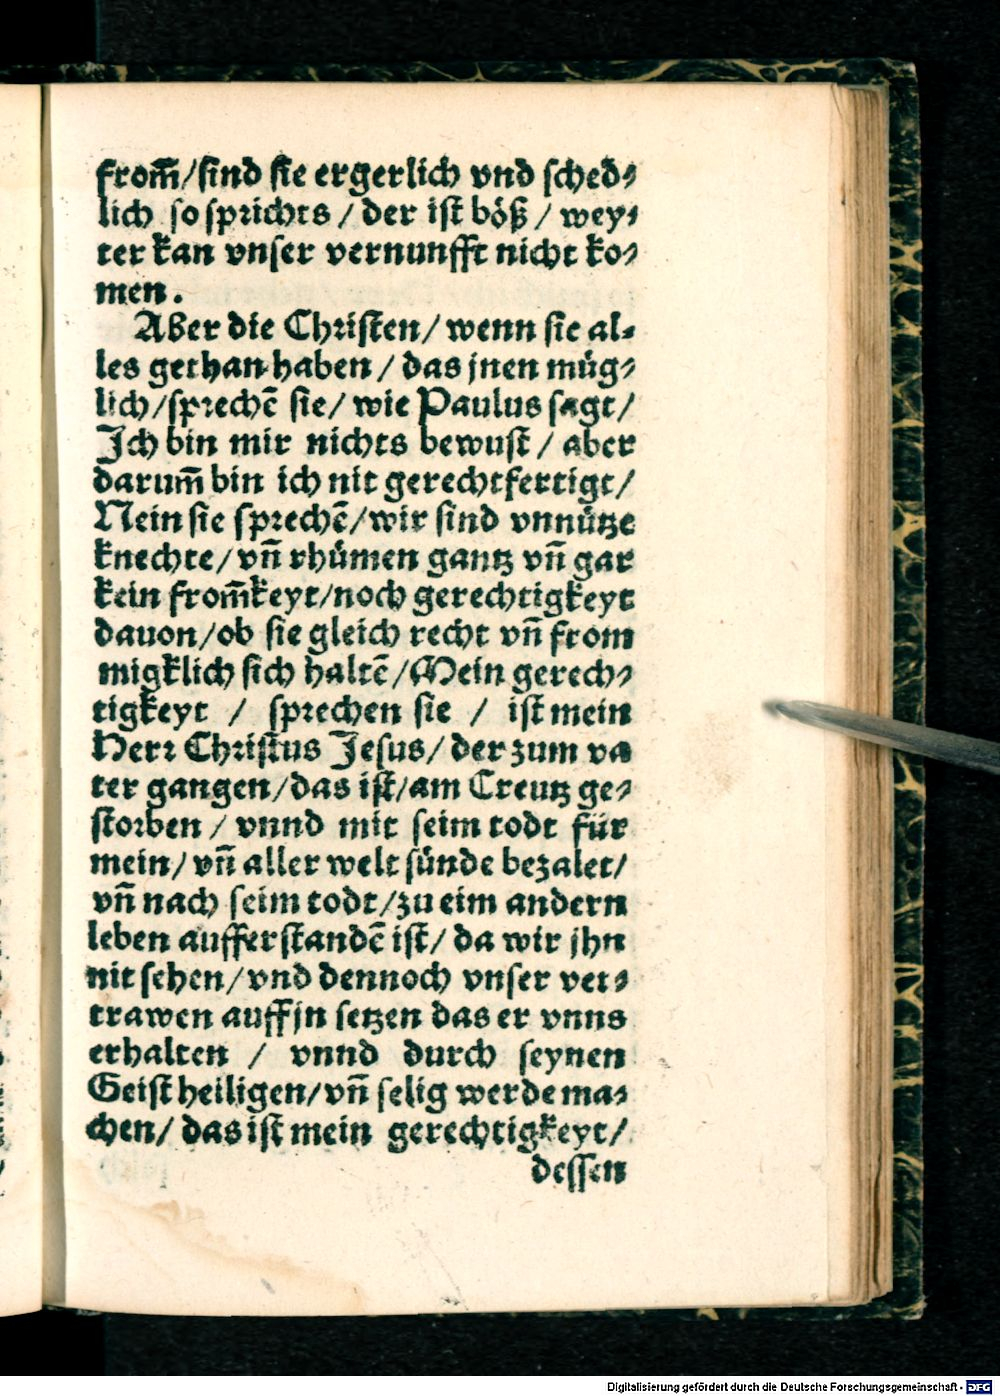 from̃/sind sie ergerlich vnd sched⸗
lich so sprichts / der ist böß / wey⸗
ter kan vnser vernunfft nicht ko⸗
men.
Aber die Christen/ wenn sie al⸗
les gethan haben / das jnen müg⸗
lich/sprechẽ sie/ wie Paulus sagt/
Ich bin mir nichts bewust / aber
darum̃ bin ich nit gerechtfertigt/
Nein sie sprechẽ/wir sind vnnütze
knechte/ vñ rhümen gantz vñ gar
kein from̃keyt/noch gerechtigkeyt
dauon/ob sie gleich recht vñ from
migklich sich haltẽ/Mein gerech⸗
tigkeyt / sprechen sie / ist mein
Herr Christus Jesus/ der zum va
ter gangen/das ist/am Creutz ge⸗
storben / vnnd mit seim todt für
mein/ vñ aller welt sünde bezalet/
vñ nach seim todt/zu eim andern
leben aufferstandẽ ist/ da wir jhn
nit sehen/ vnd dennoch vnser ver⸗
trawen auff jn setzen das er vnns
erhalten / vnnd durch seynen
Geist heiligen/vñ selig werde ma⸗
chen/ das ist mein gerechtigkeyt/
dessen
Digitalisierung gefördert durch die Deutsche Forschungsgemeinschaft - DFG